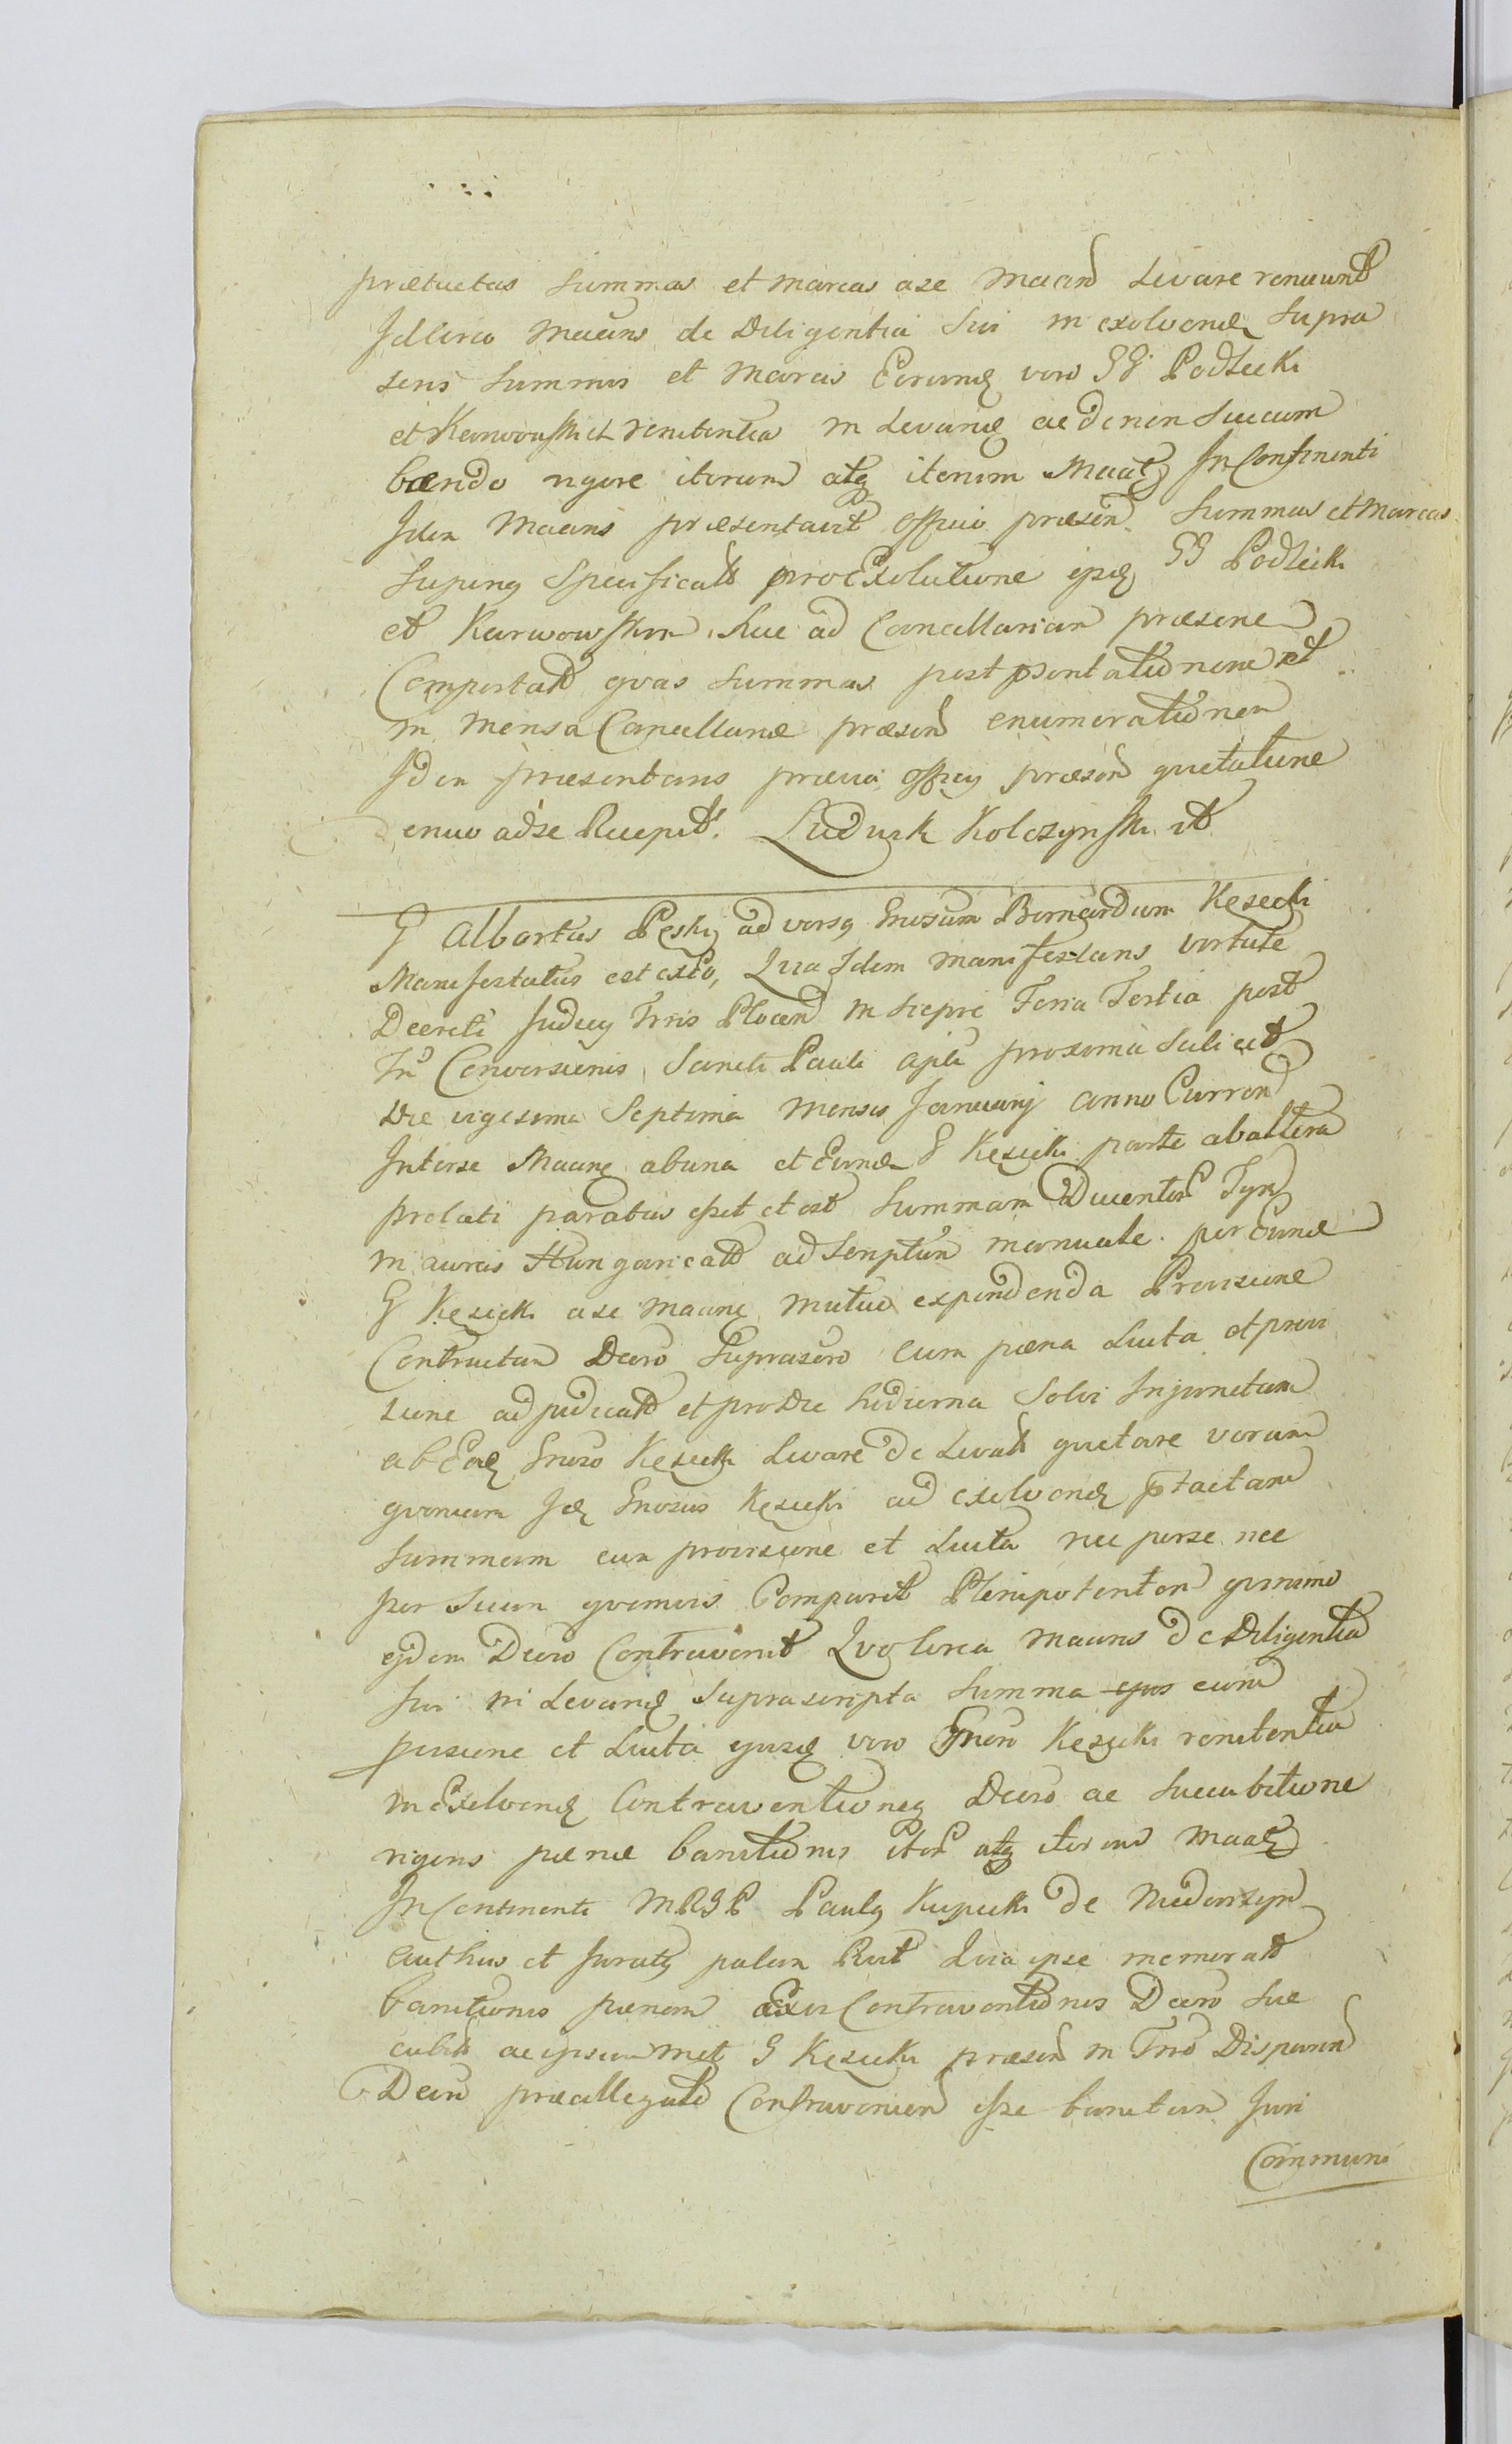 prætactas Summas et marcas a se Maań Levare renuunt
Idcirco Maans de Diligentia Sui in exolvend Supra
scris Summis et Marcis Eorund vero GG Podlecki
et Karwowski et renitentia in Levand ac de non Succum
bendo rigore iterum atq iterum Maatq In Continenti
Idem Maans præsentavit Officio præsen Summas et Marcas
Superq Specificatt pro Exolutione ipsq GG Podlecki
et Karwowskim huc ad Cancellariam præsene
Comportatt qvas Summas post psentationem et
in Mensa Cancellariæ præsen enumerationem
Idem præsentans prævia Offcij præsen qvietatione
denuo ad se Recepit. Ludwik Kolczynski mp
G Albertus Peski adversq Gnosum Bernardum Kęsicki
Manifestatus est exto, Qvia Idem manifestans virtute
Decreti Judicij Trris Plocen in Sieprc Feria Tertia post
Fm Conversionis Sancti Pauli Apli proxima Scilicet
Die vigesima Septima Mensis Januarij anno Curren
Inter se Maanq ab una et Eund G Kęsicki parte ab altera
prolati paratus esset et est Summam Ducentor Tyn
in aureis Hungaricatt ad Scriptum manuale per Eund
G Kęsicki a se Maanq Mutuo expendenda Provisione
Contractam Decro Suprascro cum pæna Lucta et provi
sione adjudicatt et pro Die hodierna Solvi Injunctam
ab Eod Gnoso Kęsicki Levare De Levatt qvietare verum
qvoniam Id Gnosus Kęsicki ad exolvend ptactam
Summam cum provisione et Lucta nec per se nec
per Suum qvemvis Comparet Plenipotentem qvinimo
ejdem Decro Contravenit Qvo circa Maans de Diligentia
Sui in Levand Suprascripta Summa ejus cum
pvisione et Lucta ipsiusq vero Gnosi Kęsicki renitentia
in Exolvend Contraventioneq Decro ac Succubitione
rigoris pænæ banitionis iter atq iterum Maatq
In Continenti MRGP Paulq Kupiecki de
authus et Juratq palam Rect Qvia ipse memoratt
banitionis pænam Exvi Contraventionis Decro Suc
cubitt ac ipsummet G Kęsicki præsen in Trno Disparen
Decro præallegato Contravenien esse banitum Juri
Communi